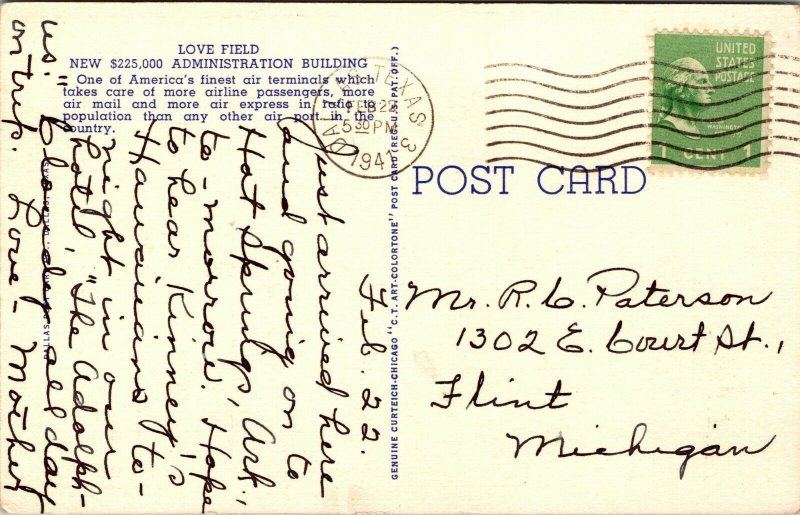 LOVE FIELD
NEW $225,000 ADMINISTRATION BUILDING
One of America's finest air terminals which
takes care of more airline passengers, more
air mail and more air express in ratio to
population than any other air port in the
country.
DALLAS, TEXAS 3
FEB 22
5 30 PM
1941
UNITED
STATES
POSTAGE
WASHINGTON
1 CENT 1
POST CARD
GENUINE CURTEICH-CHICAGO "C.T. ART-COLORTONE" POST CARD (REG. U.S. PAT. OFF.)
Feb. 22.
Just arrived here
and going on to
Hot Springs, Ark.,
to-morrow. Hope
to hear Kinney's
Hawaiians to-
night in our
hotel, "The Adolph-
us." Cloudy all day
on trip. Love - Mother
Mr. R. C. Paterson
1302 E. Court St.,
Flint
Michigan